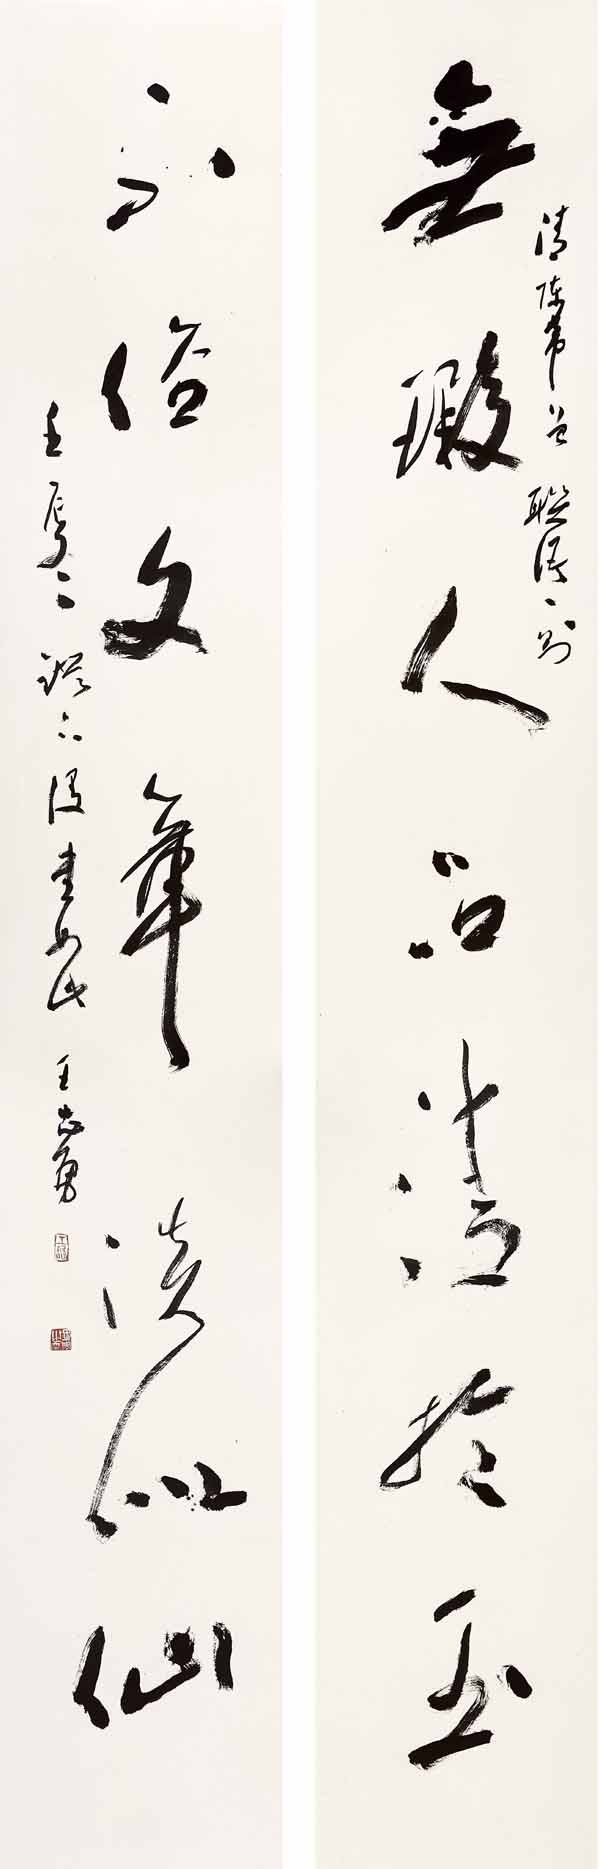 清陳希曾聯語一則
無瑕人品清於玉
不俗文章淡似仙
壬辰 書 王志勇